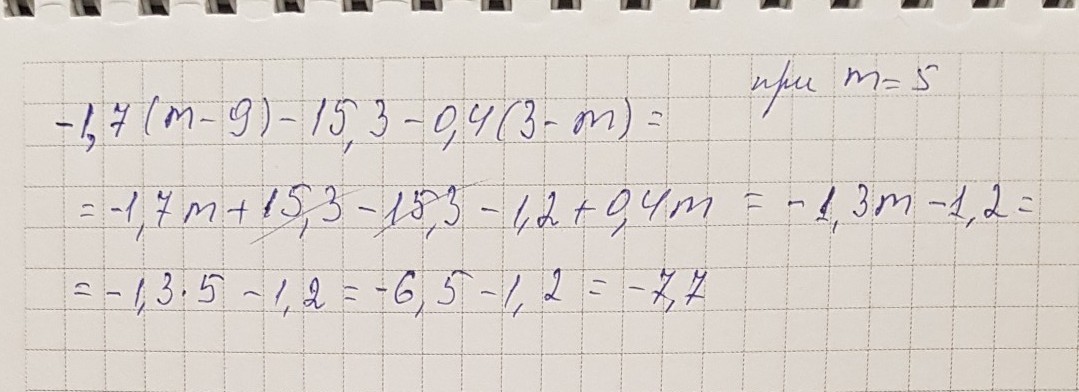 при m = 5
-1,7(m-9)-15,3-0,4(3-m)=
=-1,7m+15,3-15,3-1,2+0,4m = -1,3m-1,2=
=-1,3·5-1,2=-6,5-1,2=-7,7